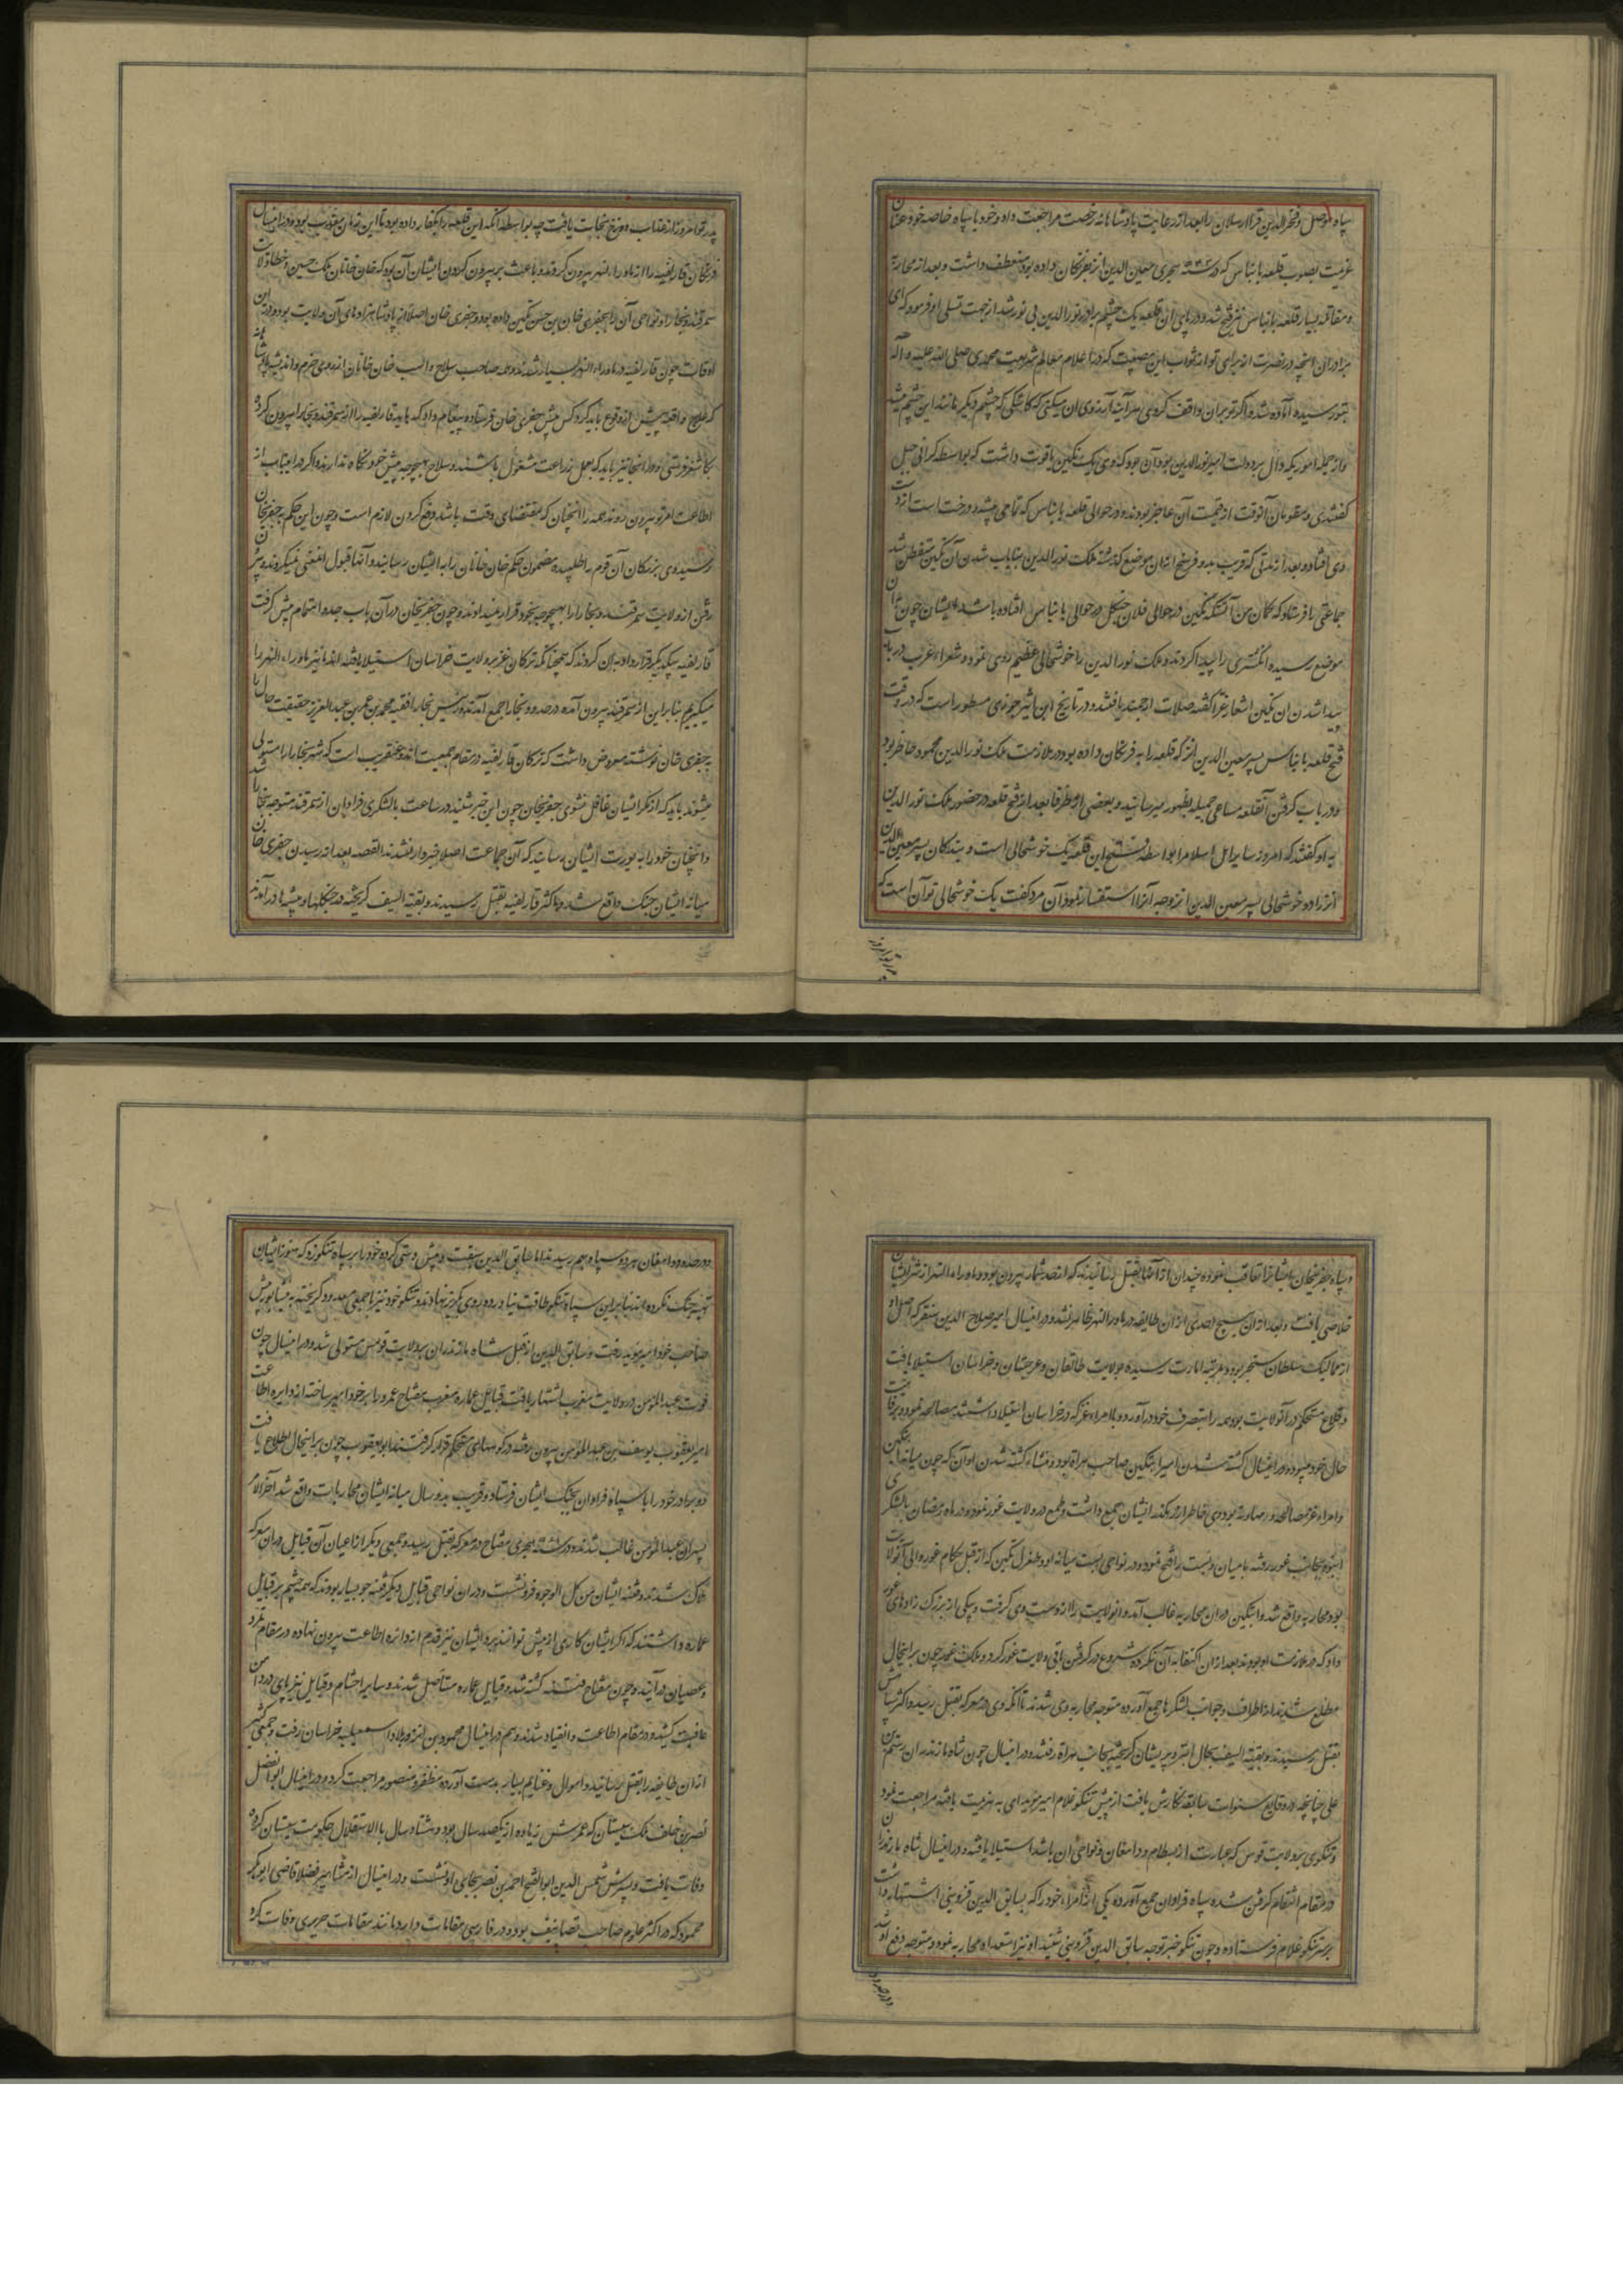 سپاه موصل و فخرالدین قراارسلان را بعد از رعایت پادشاهانه رخصت مراجعت داد و خود با سپاه خاصه خود عنان
عزیمت بصوب قلعه بانیاس که در سنه هجری معین الدین انز بفرنگان داده بود منعطف داشت و بعد از محاربه
و مقاتله بسیار قلعه بانیاس نیز فتح شد و در پای آن قلعه یک چشم برادر نورالدین بی نور شد از جهت تسلی او فرمود که ای
برادر آن آنچه در نصرت از برای تو از ثواب این مصیبت که در اعلام معالم شریعت محمدی صلی الله علیه و آله
بتو رسیده آماده شده اگر تو بران واقف گردی هر آینه آرزوی آن میکنی که کاشکی که چشم دیگر مانند این چشم میشد
و از جمله اموریکه دال بر دولت امیر نورالدین بود آن بود که وی یک نگین یاقوت داشت که بواسطه گرانی جبل
گفتندی و مقومان آنوقت از قیمت آن عاجز بودند و در حوالی قلعه بانیاس که تمامی بیشه و درخت است از دست
وی افتاد و بعد از مدتی که قریب بدو فرسخ از آن موضع گذشته ملک نورالدین بنایاب شدن آن نگین متفطن شد
جماعتی را فرستاد که گمان من آنستکه نگین در حوالی فلان جنگل در حوالی بانیاس افتاده باشد ایشان چون بدان
موضع رسیده انگشتری را پیدا کردند و ملک نورالدین را خوشحالی عظیم روی نمود و شعراء عرب در باب
پیدا شدن آن نگین اشعار غرا گفته صلات ارجمند یافتند و در تاریخ ابن اثیر جزری مسطور است که در وقت
فتح قلعه بانیاس پسر معین الدین انز که قلعه را به فرنگان داده بود در ملازمت ملک نورالدین محمود حاضر بود
و در باب گرفتن آن قلعه مساعی جمیله بظهور میرسانید و بعضی از ظرفا بعد از فتح قلعه در حضور ملک نورالدین
به او گفتند که امروز سایر اهل اسلام را بواسطه فتح این قلعه یک خوشحالی است و بندگان پسر معین الدین
انز را دو خوشحالی پسر معین الدین انز وجه آنرا استفسار نمود آن مرد گفت یک خوشحالی تو آن است که
پدر تو امروز از عذاب دوزخ نجات یافت چه بواسطه آنکه این قلعه را بکفار داده بود تا این زمان معذب بود و در این سال
ترکان قارلغیه را از ماوراء النهر بیرون کردند و باعث بر بیرون کردن ایشان آن بود که خان خانان ملک چین و خطا ولایت
سمرقند و بخارا و نواحی آن را بجغری خان بن حسن تگین داده بود و جغری خان اصلا از پادشاهزادهای آن ولایت بود و در این
اوقات چون قارلغیه در ماوراء النهر بسیار شدند و همه صاحب سلاح و اسب خان خانان از روی حزم و اندیشه پادشاهانه
که علاج واقعه پیش از وقوع باید کرد کس پیش جغری خان فرستاده پیغام داد که باید قارلغیه را از سمرقند و بخارا بیرون کرده
بکاشغر فرستی و در آنجا نیز باید که بعمل زراعت مشغول باشند و سلاح بهیچوجه پیش خود نگاه ندارند و اگر در این باب از
اطاعت امر تو بیرون روند همه را آنچنان که مقتضای وقت باشد دفع کردن لازم است و چون این حکم به جغریخان
رسید وی بزرگان آن قوم را طلبیده مضمون حکم خان خانان را به ایشان رسانید و آنها قبول این معنی نمیکردند و بر
رفتن از ولایت سمرقند و بخارا را بهیچوجه بخود قرار نمیدادند و چون جغریخان در آن باب جد و اهتمام پیش گرفت
قارلغیه بیکدیگر قرار داده بر آن کردند که همچنانکه ترکان غز بر ولایت خراسان استیلا یافته اند ما نیز ماوراء النهر را
میگیریم بنابراین از سمرقند بیرون آمده در حدود بخارا جمع آمدند و رئیس بخارا فقیه محمد بن عمر بن عبدالعزیز حقیقت حال را
به جغری خان نوشته معروض داشت که ترکان قارلغیه در مقام جمعیت اند و عنقریب است که شهر بخارا را مستولی
میشوند باید که از فکر ایشان غافل نشوی جغریخان چون این خبر شنید در ساعت با لشکری فراوان از سمرقند متوجه بخارا شد
و آنچنان خود را به یورت ایشان رسانید که آن جماعت اصلا خبردار نشدند القصه بعد از رسیدن جغری خان
میانه ایشان جنگ واقع شد و اکثر قارلغیه بقتل رسیدند و بقیة السیف گریخته در جنگلها و بیشه ها در آمدند
و سپاه جغریخان ایشان را تعاقب نموده چندان از آنها بقتل رسانیدند که از حد شمار بیرون بود و ماوراء النهر از شر ایشان
خلاصی یافت و بعد از آن هیچ احدی از آن طایفه در ماوراء النهر ظاهر نشد و در این سال امیر صلاح الدین سنقر که اصل او
از ممالیک سلطان سنجر بود و بمرتبه امارت رسیده بولایت طالقان و غرجستان و خراسان استیلا یافت
و قلاع مستحکم در آن ولایت بود همه را بتصرف خود در آورد و با امراء غز که در خراسان استیلا داشتند مصالحه نمود و به رفاهیت
حال خود میبود و در این سال کشته شدن امیر ایتگین صاحب هراة بود و منشاء کشته شدن او آن که چون میانه ایتگین
و امراء غز مصالحه و مهاونه بود وی خاطر از رهگذر ایشان جمع داشت و طمع در ولایت غور نمود و در ماه رمضان با لشکری
انبوه بجانب غور رفته بامیان و بست را فتح نمود و در نواحی بست میانه او و طغرل تگین که از قبل حکام غور والی آنولایت
بود محاربه واقع شد و ایتگین در آن محاربه غالب آمد و آنولایت را از دست وی گرفت و بیکی از بزرگ زادهای غور
داد که در ملازمت او بودند بعد از آن اکتفا به آن نکرده شروع در گرفتن باقی ولایت غور کرد و ملک محمد چون بر اینحال
مطلع شد از اطراف و جوانب لشکرها جمع آورده متوجه محاربه وی شدند تا آنکه وی در معرکه بقتل رسید و اکثر سپاهش
بقتل رسیدند و بقیة السیف بحال ابتر و پریشان گریخته بجانب هراة رفتند و در این سال چون شاه مازندران رستم بن
علی چنانچه در وقایع سنوات سابقه نگارش یافت از پیش تنکز غلام امیر موید ای به هزیمت یافته مراجعت نمود
و تنکز بر ولایت قومس که عبارت از بسطام و دامغان و نواحی آن باشد استیلا یافته و در این سال شاه مازندران
در مقام انتقام گرفتن شده سپاه فراوان جمع آورده یکی از امراء خود را که بسابق الدین قزوینی اشتهار داشت
بر سر تنکز غلام فرستاده و چون تنکز خبر توجه سابق الدین قزوینی شنید او نیز استعداد محاربه نمود و متوجه دفع او شد
در حدود دامغان هر دو سپاه بهم رسیدند اما سابق الدین سبقت و پیش دستی کرده خود را بر سپاه تنکز زد که هنوز ایشان
تهیه جنگ نکرده اند بنابراین سپاه تنکز طاقت نیاورده روی بگریز نهادند و تنکز خود نیز با جمعی معدود گریخته به نیشابور پیش
صاحب خود امیر موید رفت و سابق الدین از قبل شاه مازندران بر ولایت قومس مستولی شد و در این سال چون
فوت عبدالمؤمن در ولایت مغرب اشتهار یافت قبایل غماره مغرب مفتاح عمرو را بر خود امیر ساخته از دایره اطاعت
امیر یعقوب یوسف بن عبدالمؤمن بیرون رفته در کوههای مستحکم قرار گرفتند ابو یعقوب چون بر اینحال اطلاع یافت
دو برادر خود را با سپاه فراوان بجنگ ایشان فرستاد و قریب بدو سال میانه ایشان محاربات واقع شد آخر الامر
پسران عبدالمؤمن غالب شدند و در سنه هجری مفتاح در معرکه بقتل رسید و جمعی دیگر از اعیان آن قبایل در آن معرکه
هلاک شدند و فتنه ایشان من کل الوجوه فرو نشست و در آن نواحی قبایل دیگر فتنه جو بسیار بودند که همه چشم بر قبایل
غماره داشتند که اگر ایشان کاری از پیش توانند برد ایشان نیز قدم از دایره اطاعت بیرون نهاده در مقام تمرد
و عصیان در آیند و چون مفتاح فتنه کشته شد و قبایل غماره مستأصل شدند و سایر احشام و قبایل نیز پای در دامن
عافیت کشیده در مقام اطاعت و انقیاد شدند و هم در این سال محمود بن انز و بلاد اسمعیلیه خراسان رفت و جمعی کثیر
از آن طایفه را بقتل رسانید و اموال و غنایم بسیار بدست آورده مظفر و منصور مراجعت کرد و در این سال ابوالفضل
نصر بن خلف ملک سیستان که عمرش زیاده از یکصد سال بود و هشتاد سال با الاستقلال حکومت سیستان کرده
وفات یافت و پسرش شمس الدین ابوالفتح احمد بن نصر بجای او نشست و در این سال از مشاهیر فضلا قاضی ابوبکر
محمود که در اکثر علوم صاحب تصانیف بود و در فارسی مقامات دارد مانند مقامات حریری وفات کرد